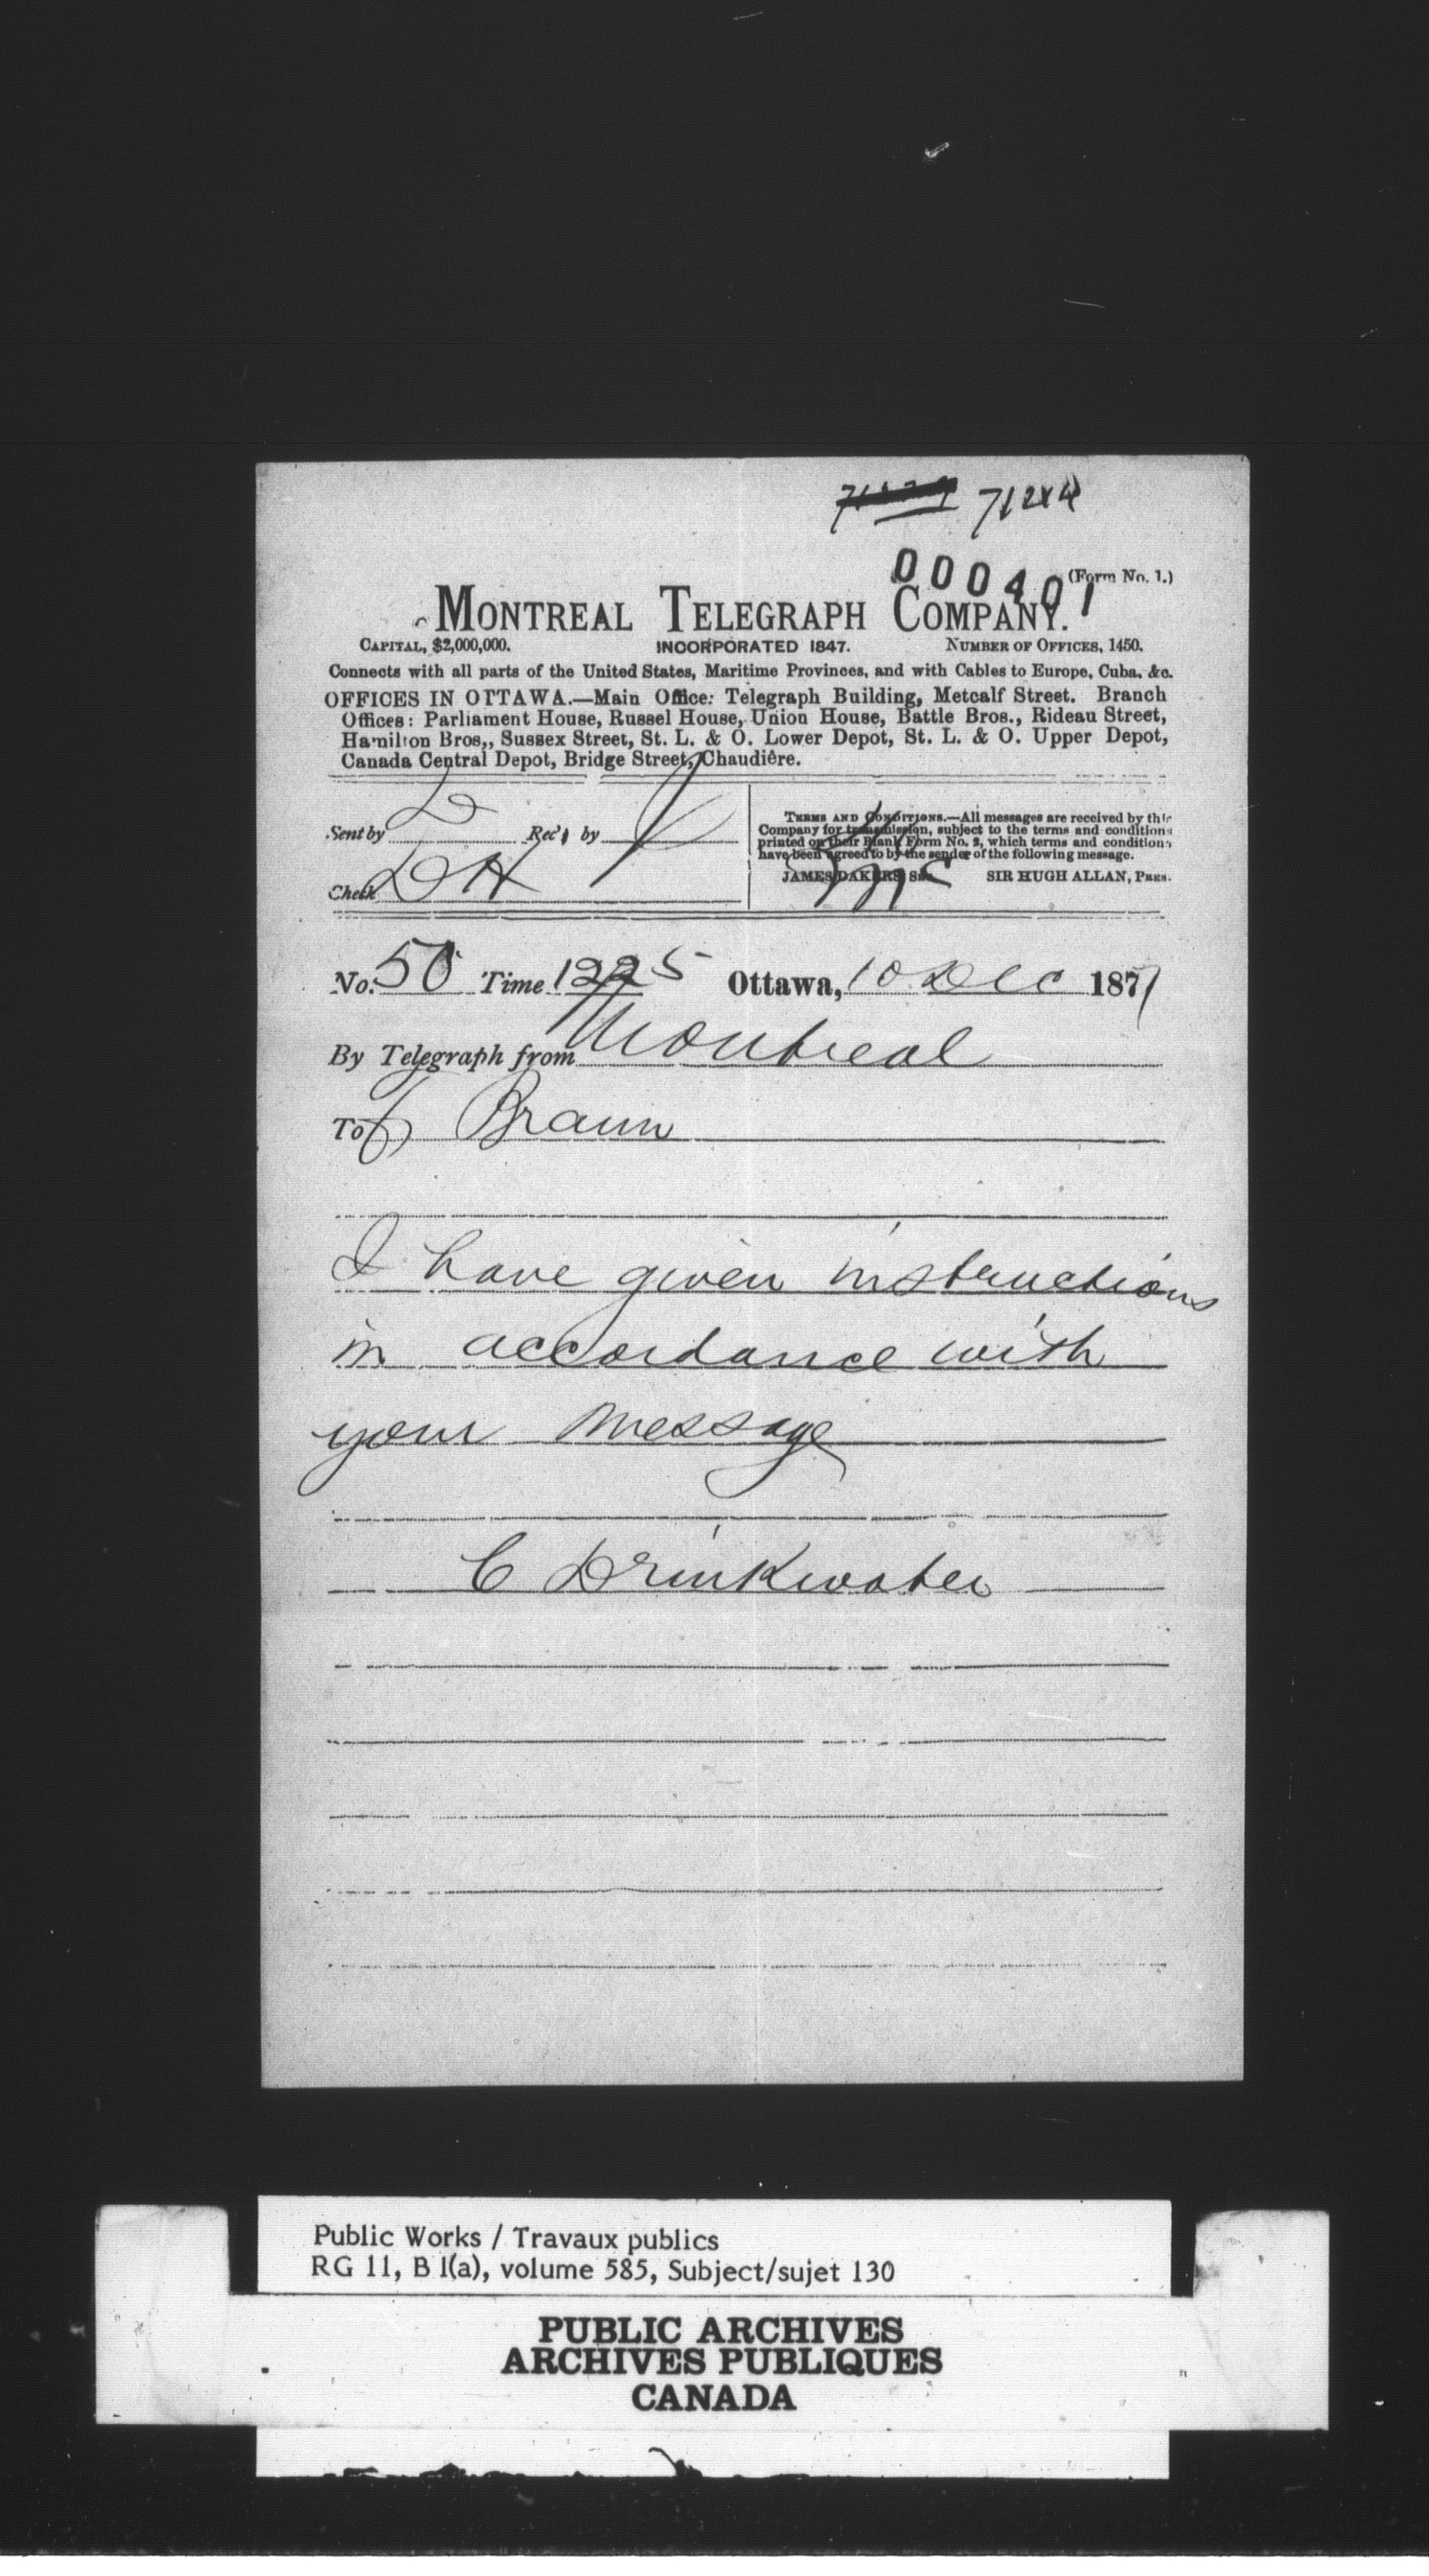 000401
(Form No. 1.)
MONTREAL TELEGRAPH COMPANY.
CAPITAL, $2,000,000. INCORPORATED 1847. NUMBER OF OFFICES, 1450.
Connects with all parts of the United States, Maritime Provinces, and with Cables to Europe, Cuba, &c.
OFFICES IN OTTAWA.—Main Office: Telegraph Building, Metcalf Street. Branch
Offices: Parliament House, Russel House, Union House, Battle Bros., Rideau Street,
Hamilton Bros,, Sussex Street, St. L. & O. Lower Depot, St. L. & O. Upper Depot,
Canada Central Depot, Bridge Street, Chaudière.
Sent by Rec'd by
Check DH
TERMS AND CONDITIONS.—All messages are received by this
Company for transmission, subject to the terms and conditions
printed on their Blank Form No. 2, which terms and conditions
have been agreed to by the sender of the following message.
JAMES DAKERS, Sec. SIR HUGH ALLAN, PRES.
No. 50 Time 1225 Ottawa, 10 Dec 1877
By Telegraph from Montreal
To F Braun
I have given instructions
in accordance with
your message
C Drinkwater
Public Works / Travaux publics
RG 11, B 1(a), volume 585, Subject/sujet 130
PUBLIC ARCHIVES
ARCHIVES PUBLIQUES
CANADA